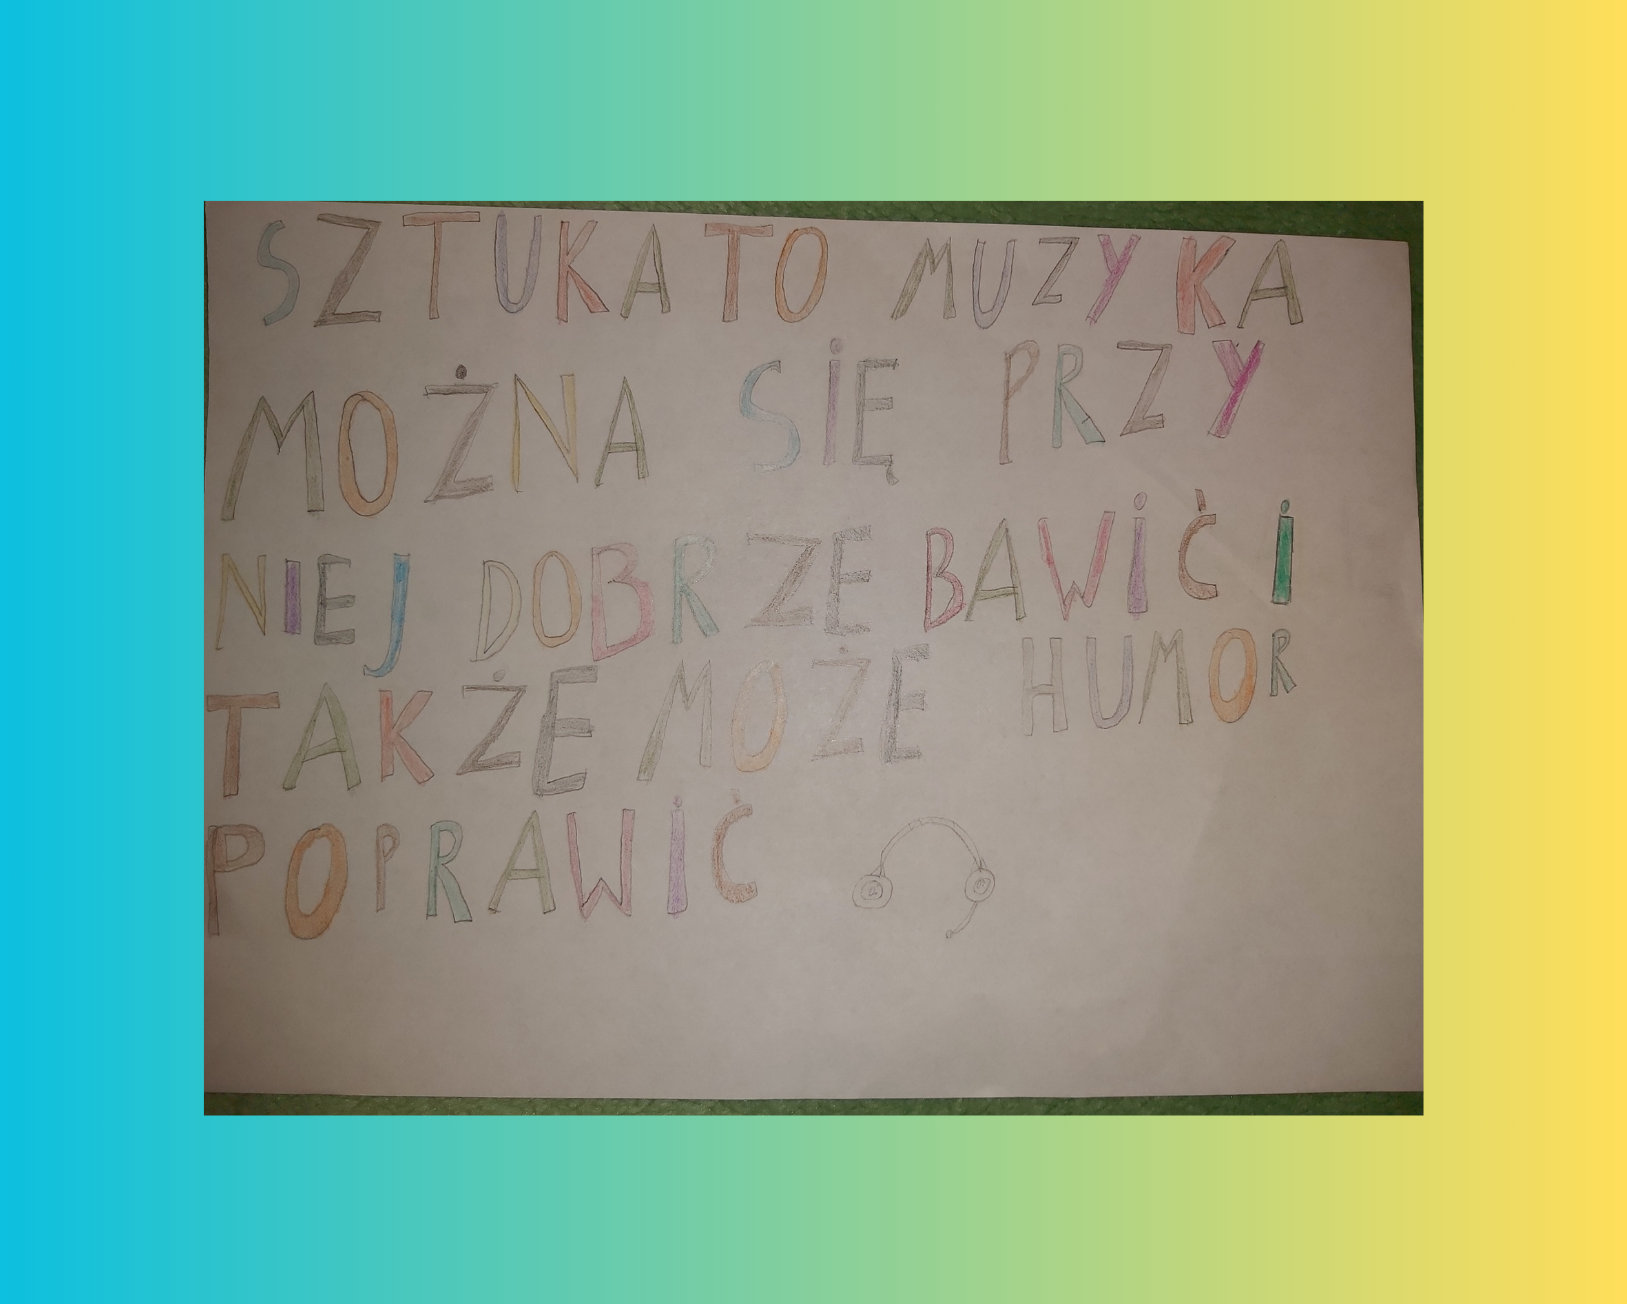 SZTUKA TO MUZYKA
MOŻNA SIĘ PRZY
NIEJ DOBRZE BAWIĆ I
TAKŻE MOŻE HUMOR
POPRAWIĆ